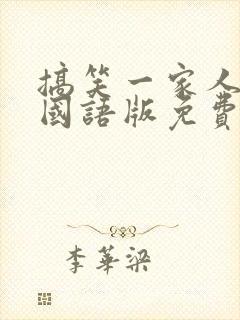 搞笑一家人
國語版免費
李華梁